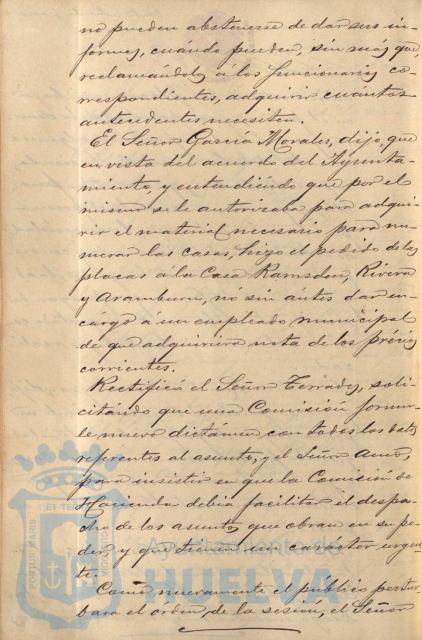 no pueden abstenerse de dar sus in-
formes, cuando pueden, sin más que,
reclamándoles á los funcionarios co-
rrespondientes, adquirir cuántos
antecedentes necesiten.
El Señor García Morales, dijo, que
en vista del acuerdo del Ayunta-
miento, y entendiéndo que por el
mismo se le autorizaba para adqui-
rir el material necesario para nu-
merar las casas, hizo el pedido de las
placas á la Casa Ramsden, Rivera
y Aramburu, nó sin ántes dar en-
cargo á un empleado municipal
de que adquiriera nota de los précios
corrientes.
Rectificó el Señor Terrades, soli-
citándo que una Comisión formu-
le nuevo dictámen con todos los datos
referentes al asunto, y el Señor
para insistir en que la Comisión de
Hacienda debia facilitar el despa-
cho de los asuntos que obran en su po-
der y que tienen un carácter urgen-
te.
Como nuevamente el público pertur-
bara el orden, de la sesión, el Señor
PORTUS MARIS
ET TERRAE
CUSTODIO
Ayuntamiento de
HUELVA